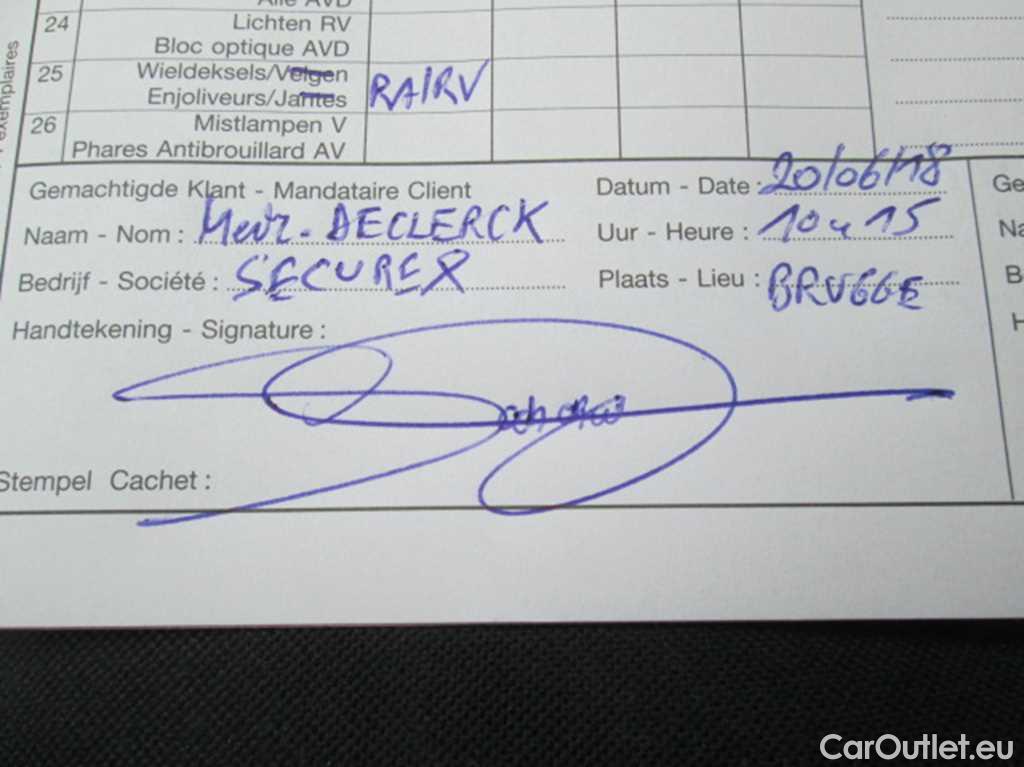 Alle AVD
24 Lichten RV
Bloc optique AVD
25 Wieldeksels/Velgen RA/RV
Enjoliveurs/Jantes
26 Mistlampen V
Phares Antibrouillard AV
exemplaires
Gemachtigde Klant - Mandataire Client Datum - Date : 20/06/18
Naam - Nom : Mevr. DECLERCK Uur - Heure : 10u15
Bedrijf - Société : SECUREX Plaats - Lieu : BRUGGE
Handtekening - Signature :
Stempel Cachet :
Ge
Na
B
H
CarOutlet.eu